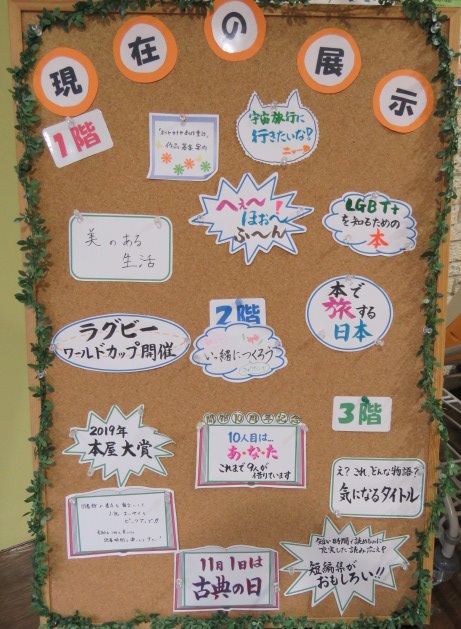 現在の展示
1階
宇宙旅行に
行きたいな?
へぇ〜!
ほぉ〜
ふ〜ん
LGBT+
を知るための
本
美のある
生活
2階
いっ緒につくろう
本で
旅する
日本
ラグビー
ワールドカップ開催
3階
2019年
本屋大賞
10人目は…
あ・な・た
これまで9人が
借りています
え?これ、どんな物語?
気になるタイトル
11月1日は
古典の日
短い時間で読めるのに
充実した読みごたえ?
短編集が
おもしろい!!